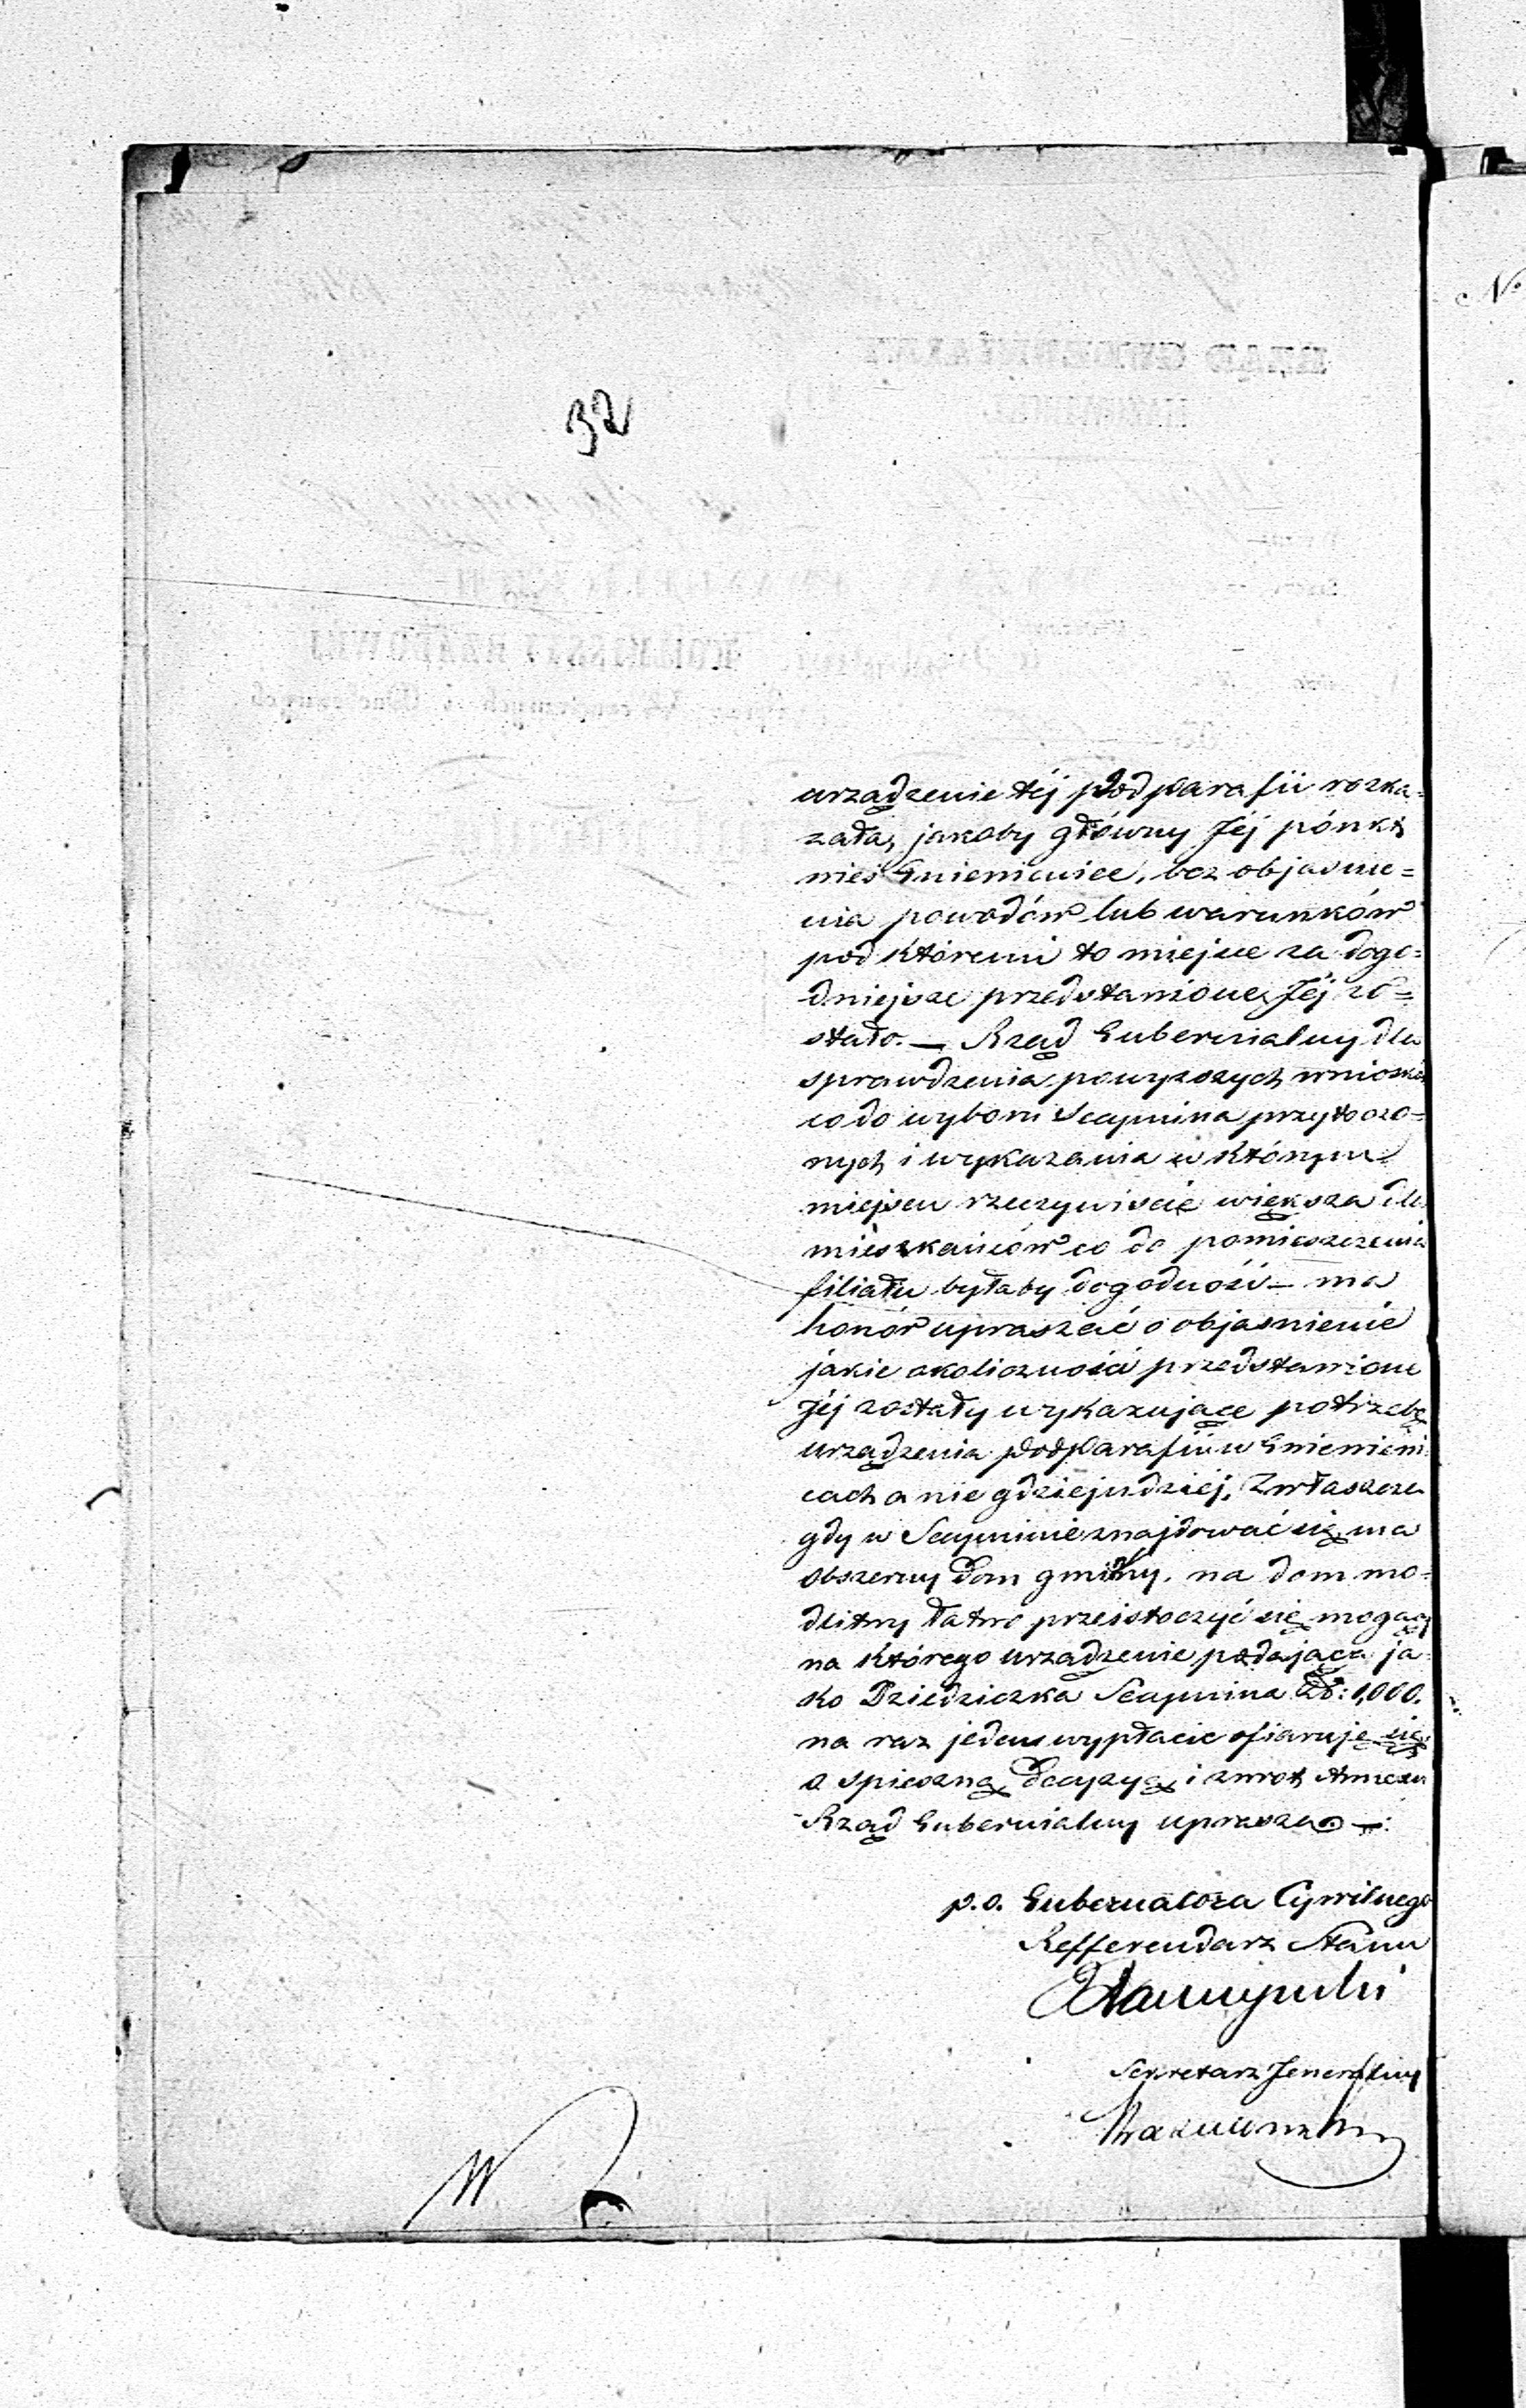 32
urządzenie téj podparafii rozka=
zała, jakoby główny Jéj pónkt
wieś Gnieniewice, bez objaśnie=
nia powodów lub warunków
pod któremi to miejsce za dogo=
dniejsze przedstawione Jéj zo=
stało. — Rząd Gubernialny dla
sprawdzenia powyższych wniosków
co do wyboru Secymina przytoczo=
nych i wykazania w którym
miejscu rzeczywiście większa dla
mieszkańców co do pomieszczenia
filiału byłaby dogodność — ma
honor upraszać o objaśnienie
jakie okoliczności przedstawione
Jéj zostały wykazujące potrzebę
urządzenia podparafii w Gniewni
cach a nie gdzieindziej, zwłaszcza
gdy w Secyminie znajdować się ma
obszerny dom gminny, na dom mo=
dlitwy łatwo przeistoczyć się mogący
na którego urządzenie podająca ja
ko Dziedziczka Secymina Zł: 1,000.
na raz jeden wypłacić ofiaruje się
O spieszną decyzyą i zwrot Annexu
Rząd Gubernialny uprasza —
p.o. Gubernatora Cywilnego
Refferendarz Stanu
Sekretarz Jeneralny